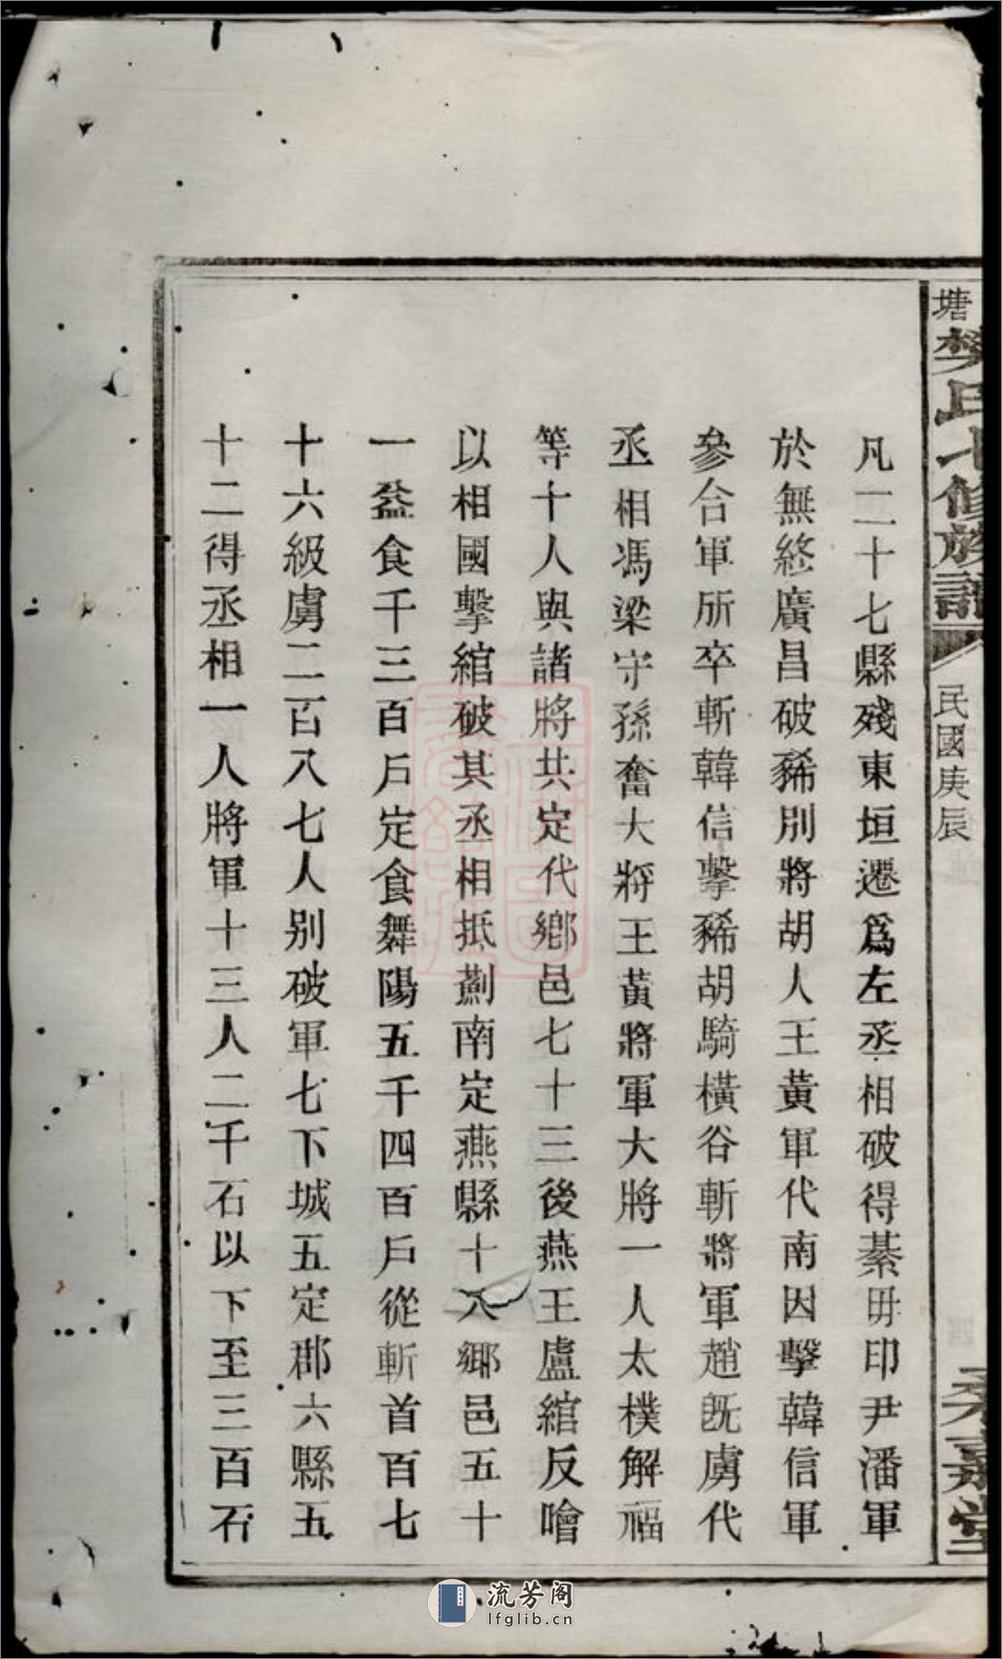 塘樊氏七修族譜
民國庚辰
凡二十七縣殘東垣遷爲左丞相破得綦毌印尹潘軍
於無終廣昌破豨別將胡人王黃軍代南因擊韓信軍
參合軍所卒斬韓信擊豨胡騎橫谷斬將軍趙旣虜代
丞相馮梁守孫奮大將王黃將軍大將一人太樸解福
等十人與諸將共定代鄉邑七十三後燕王盧綰反噲
以相國擊綰破其丞相抵薊南定燕縣十八鄉邑五十
一益食千三百戶定食舞陽五千四百戶從斬首百七
十六級虜二百八七人别破軍七下城五定郡六縣五
十二得丞相一人將軍十三人二千石以下至三百石
流芳阁
lfglib.cn